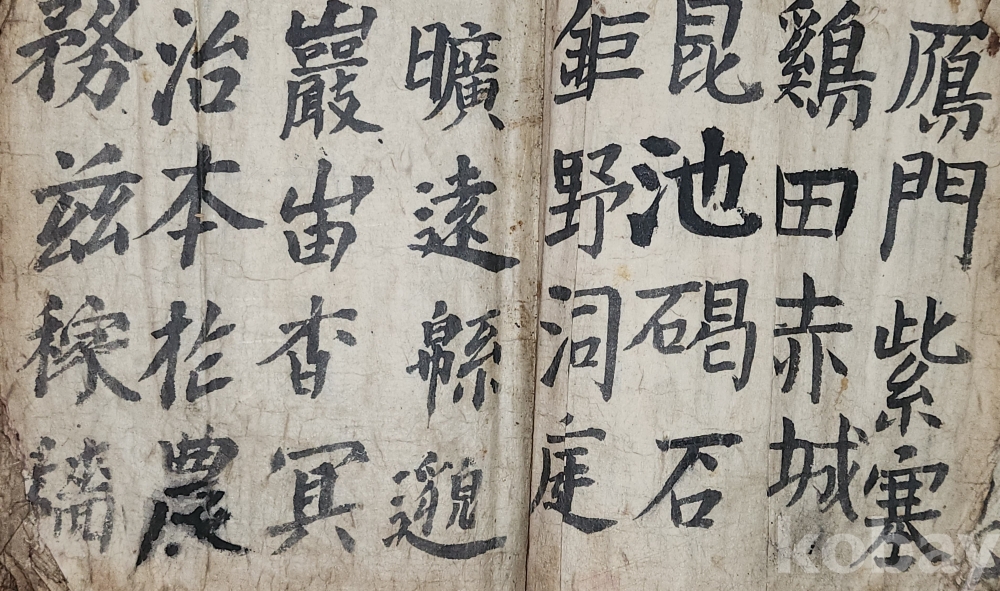 鴈門紫塞
鷄田赤城
昆池碣石
鉅野洞庭
曠遠緜邈
巖峀杳冥
治本於農
務茲稼穡
kobay